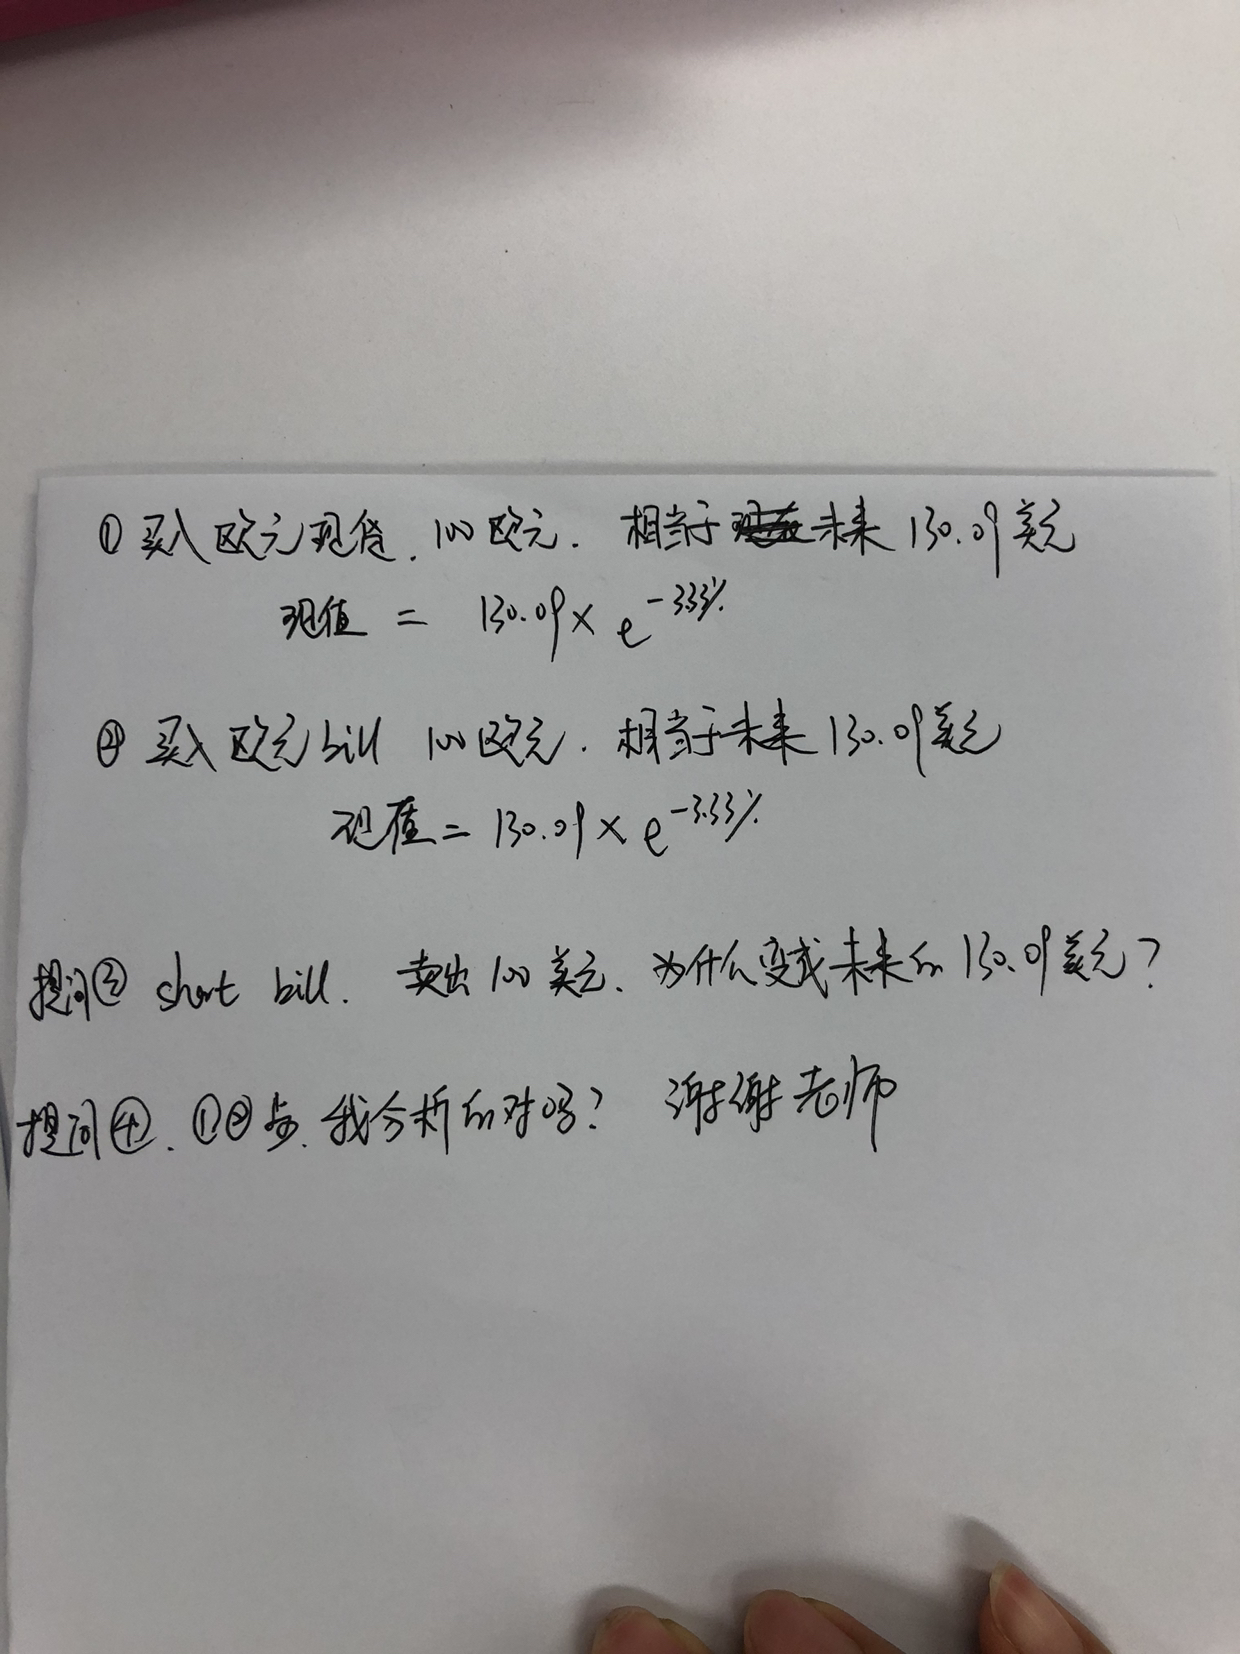 ① 买入欧元现货. 100欧元. 相当于未来130.09美元
现值 = 130.09 × e^-3.33%
② 买入欧元bill 100欧元. 相当于未来130.09美元
现值 = 130.09 × e^-3.33%
提问③ short bill. 卖出100美元. 为什么变成未来的130.09美元?
提问④. ①②步. 我分析的对吗? 谢谢老师